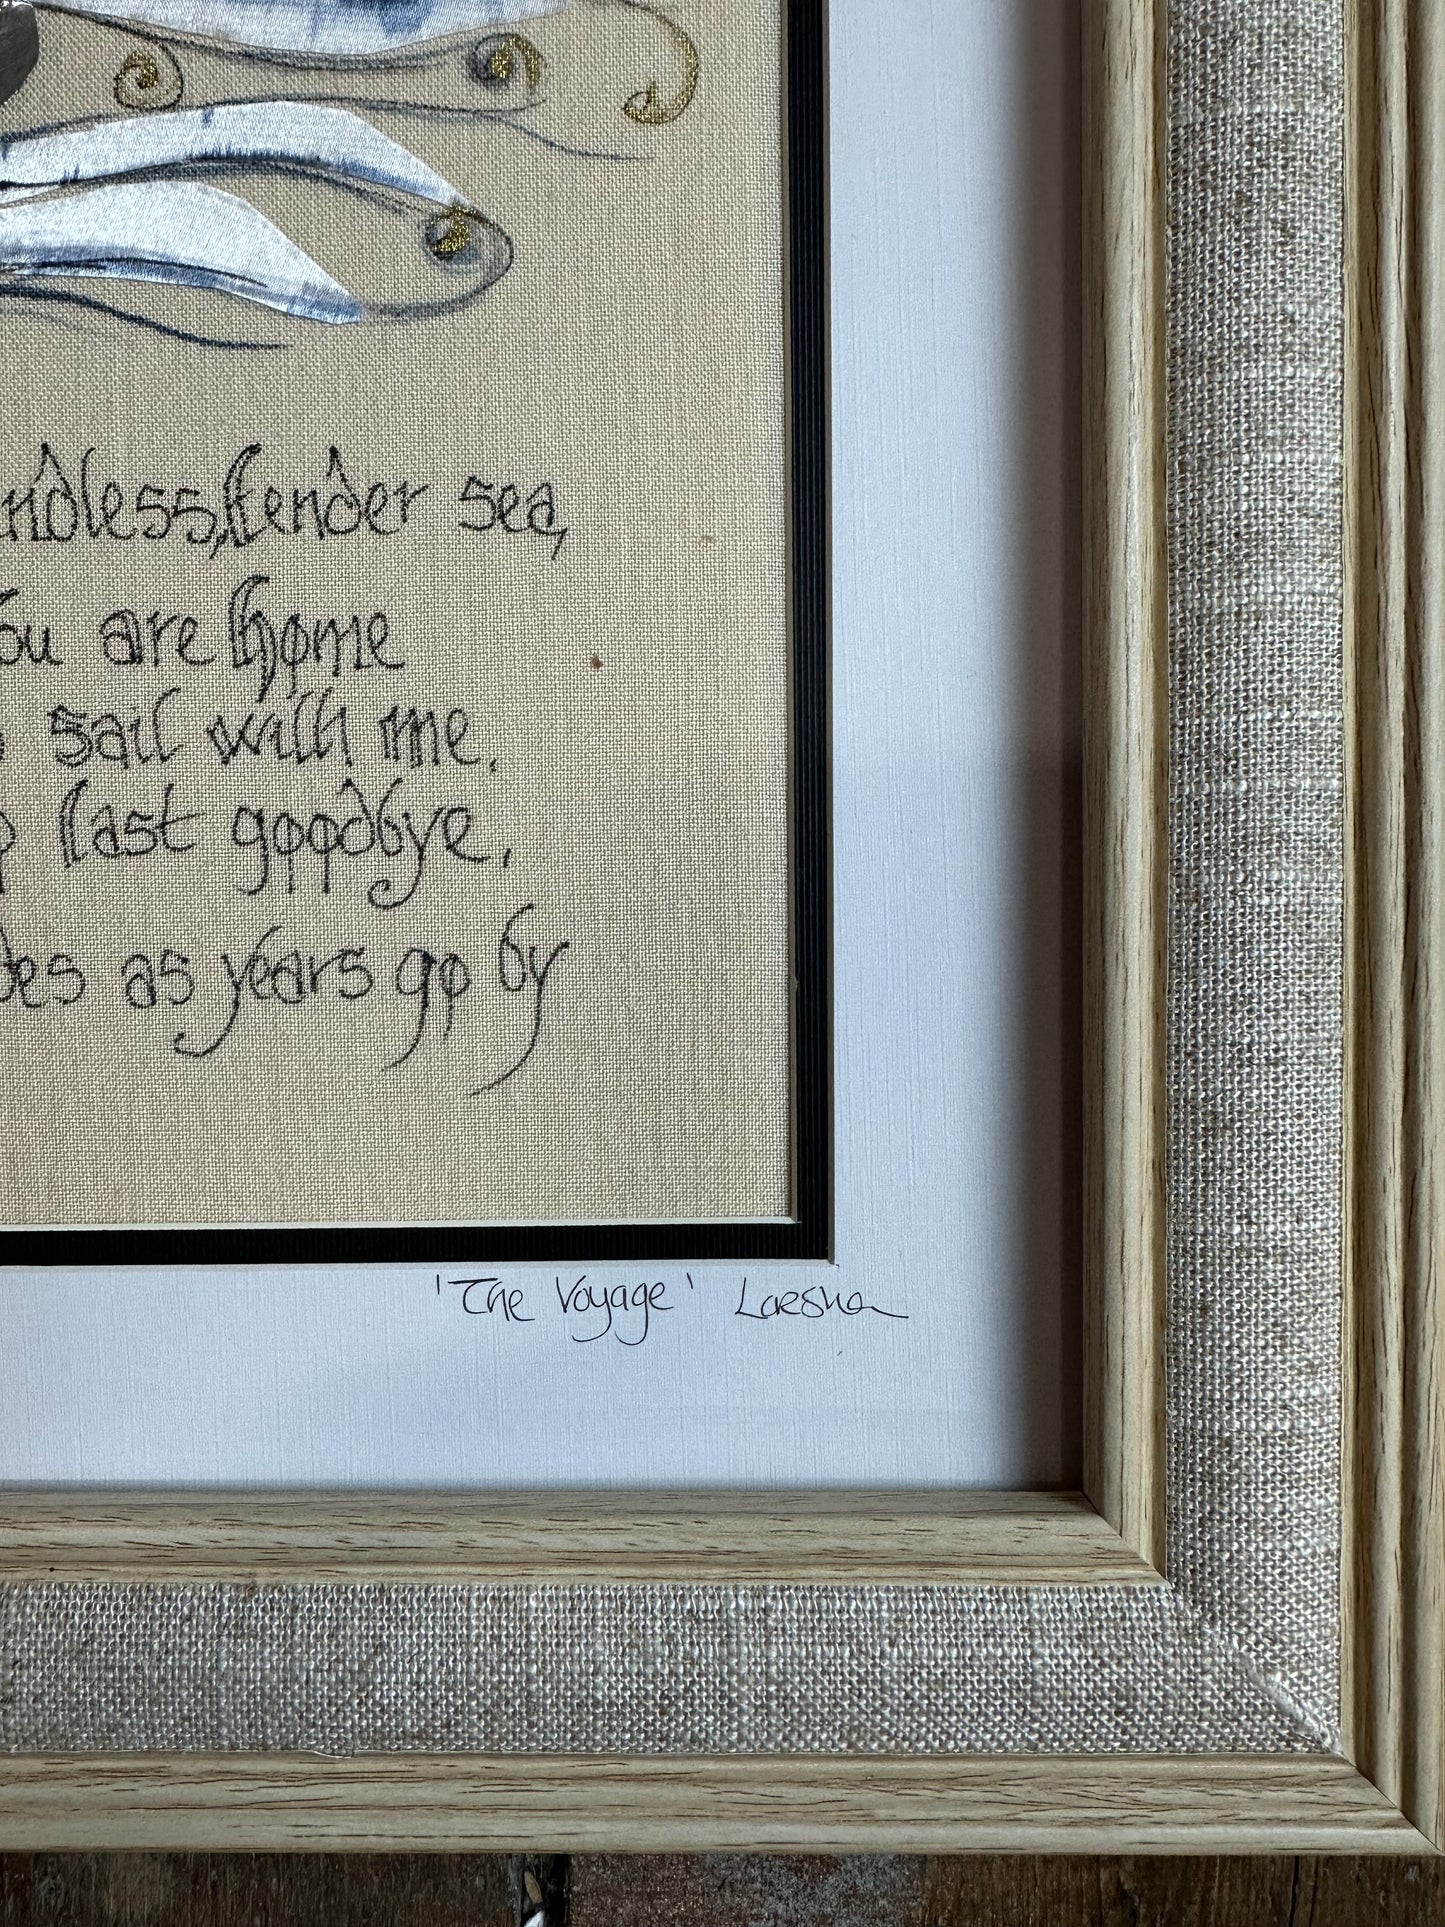 ndless, tender sea,
ou are home
sail with me.
last goodbye.
es as years go by
'The Voyage' Laesha